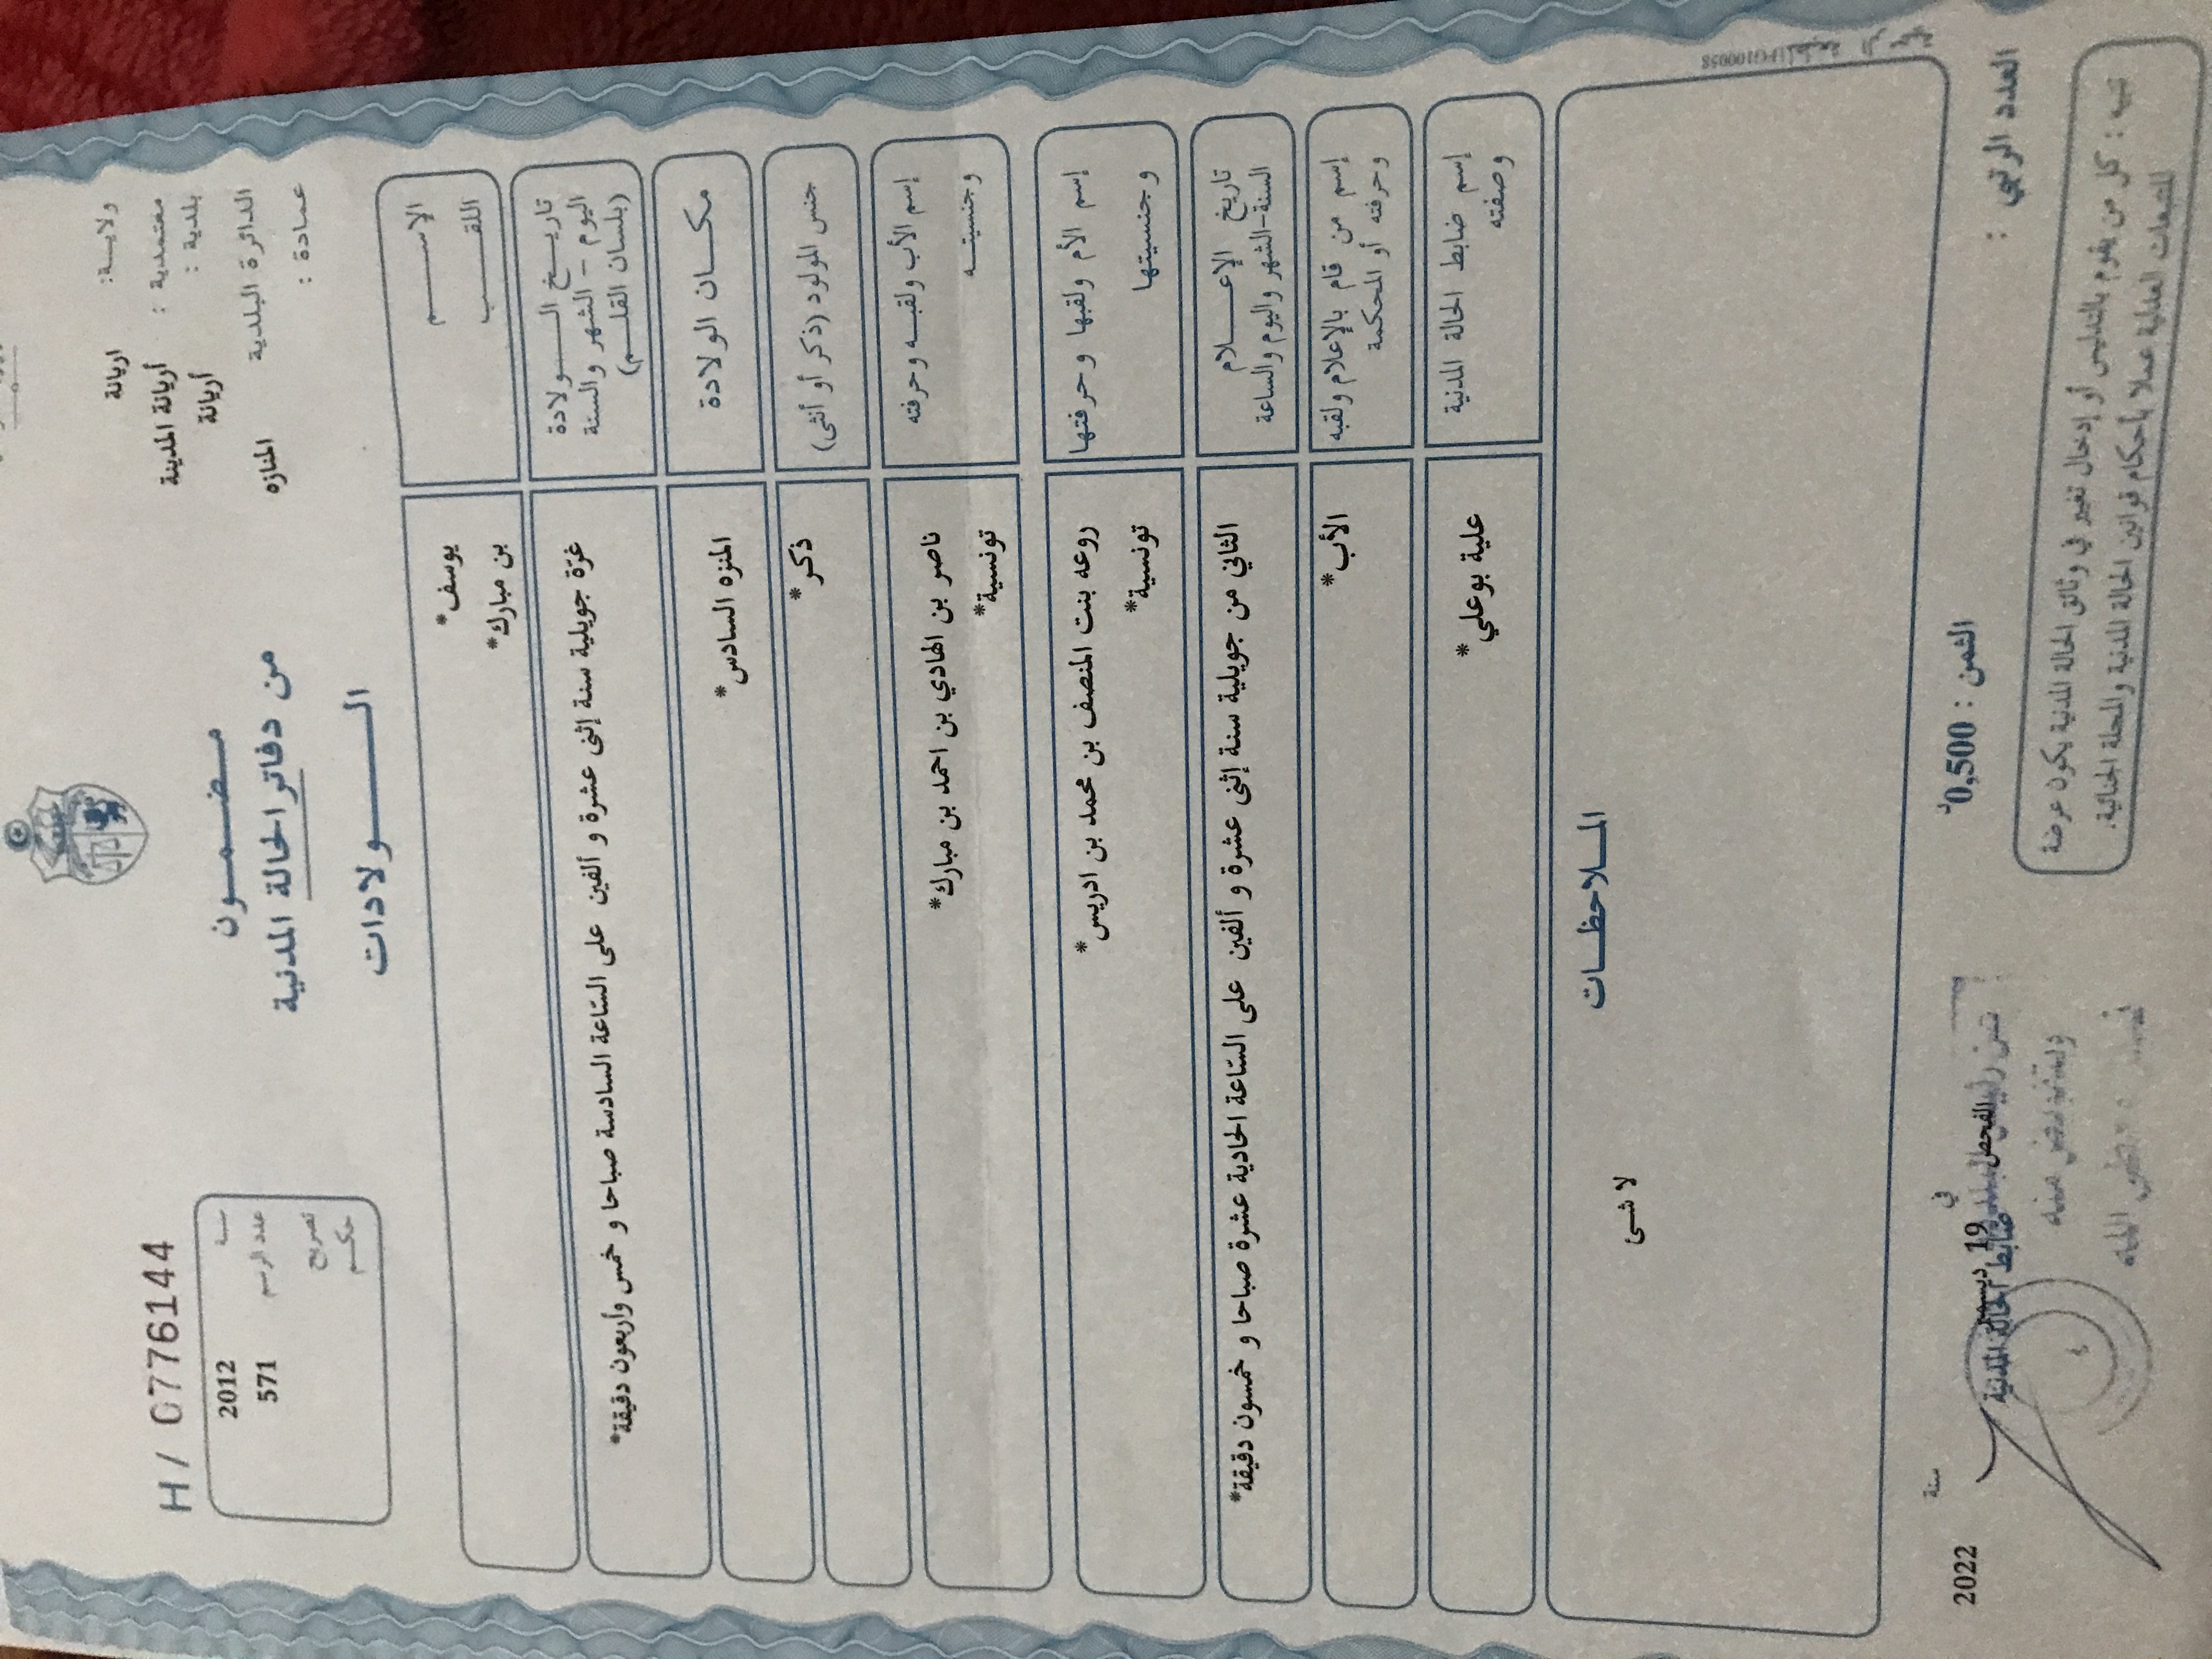 H / 07776144
ولاية: اريانة
معتمدية : أريانة المدينة
بلدية : أريانة
الدائرة البلدية المنازه
عمادة :
مضمون
من دفاتر الحالة المدنية
الولادات
سنة 2012
عدد الرسم 571
تصريح
حكم
الإسم يوسف*
اللقب بن مبارك*
تاريخ الولادة
اليوم - الشهر والسنة
(بلسان القلم)
غرّة جويلية سنة إثنى عشرة و ألفين على السّاعة السادسة صباحا و خمس وأربعون دقيقة*
مكان الولادة المنزه السادس*
جنس المولود (ذكر أو أنثى) ذكر*
إسم الأب ولقبه وحرفته ناصر بن الهادي بن احمد بن مبارك*
وجنسيته تونسية*
إسم الأم ولقبها وحرفتها روعه بنت المنصف بن محمد بن ادريس*
وجنسيتها تونسية*
تاريخ الإعلام
السنة-الشهر واليوم والساعة
الثاني من جويلية سنة إثنى عشرة و ألفين على السّاعة الحادية عشرة صباحا و خمسون دقيقة*
إسم من قام بالإعلام ولقبه
وحرفته أو المحكمة
الأب*
إسم ضابط الحالة المدنية
وصفته
علية بوعلي*
الملاحظات
لا شئ
العدد الرتبي :
الثمن : 0,500د
في 19 ديسمبر سنة 2022
ضابط الحالة المدنية
تنبيه : كل من يقوم بالتدليس أو إدخال تغيير في وثائق الحالة المدنية يكون عرضة
للتتبعات العدلية عملا بأحكام قوانين الحالة المدنية والمجلة الجنائية.